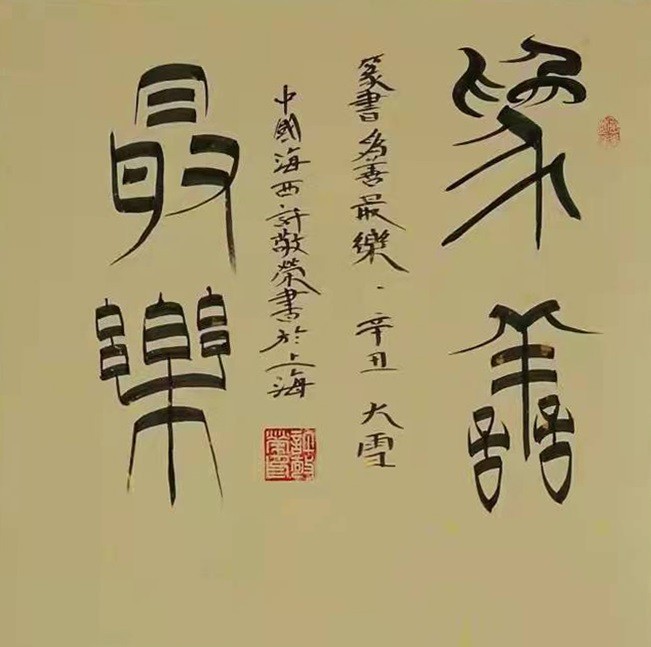 為善
篆書為善最樂．辛丑大雪
中國海西許敬榮書於上海
最樂